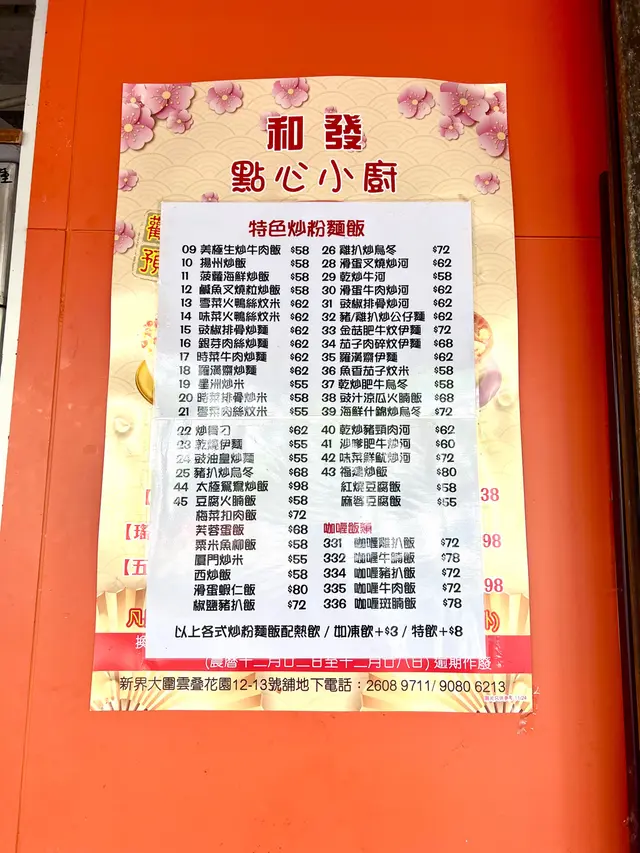 和發
點心小廚
特色炒粉麵飯
09 美極生炒牛肉飯 $58
10 揚州炒飯 $58
11 菠蘿海鮮炒飯 $58
12 鹹魚叉燒粒炒飯 $58
13 雪菜火鴨絲炆米 $62
14 味菜火鴨絲炆米 $62
15 豉椒排骨炒麵 $62
16 銀芽肉絲炒麵 $62
17 時菜牛肉炒麵 $62
18 羅漢齋炒麵 $62
19 星洲炒米 $55
20 時菜排骨炒米 $58
21 雪菜肉絲炆米 $55
22 炒貴刁 $62
23 乾燒伊麵 $55
24 豉油皇炒麵 $55
25 豬扒炒烏冬 $68
44 太極鴛鴦炒飯 $98
45 豆腐火腩飯 $58
梅菜扣肉飯 $72
芙蓉蛋飯 $68
粟米魚柳飯 $58
廈門炒米 $55
西炒飯 $58
滑蛋蝦仁飯 $80
椒鹽豬扒飯 $72
26 雞扒炒烏冬 $72
28 滑蛋叉燒炒河 $62
29 乾炒牛河 $58
30 滑蛋牛肉炒河 $62
31 豉椒排骨炒河 $62
32 豬/雞扒炒公仔麵 $62
33 金菇肥牛炆伊麵 $72
34 茄子肉碎炆伊麵 $68
35 羅漢齋伊麵 $62
36 魚香茄子炆米 $58
37 乾炒肥牛烏冬 $58
38 豉汁涼瓜火腩飯 $68
39 海鮮什錦炒烏冬 $72
40 乾炒豬頸肉河 $62
41 沙嗲肥牛炒河 $60
42 味菜鮮魷炒河 $72
43 福建炒飯 $80
紅燒豆腐飯 $58
麻婆豆腐飯 $55
咖喱飯類
331 咖喱雞扒飯 $72
332 咖喱牛腩飯 $78
334 咖喱豬扒飯 $72
335 咖喱牛肉飯 $72
336 咖喱斑腩飯 $78
以上各式炒粉麵飯配熱飲 / 如凍飲+$3 / 特飲+$8
(農曆十二月廿二日至十二月廿八日) 逾期作廢
新界大圍雲疊花園12-13號舖地下電話：2608 9711/ 9080 6213